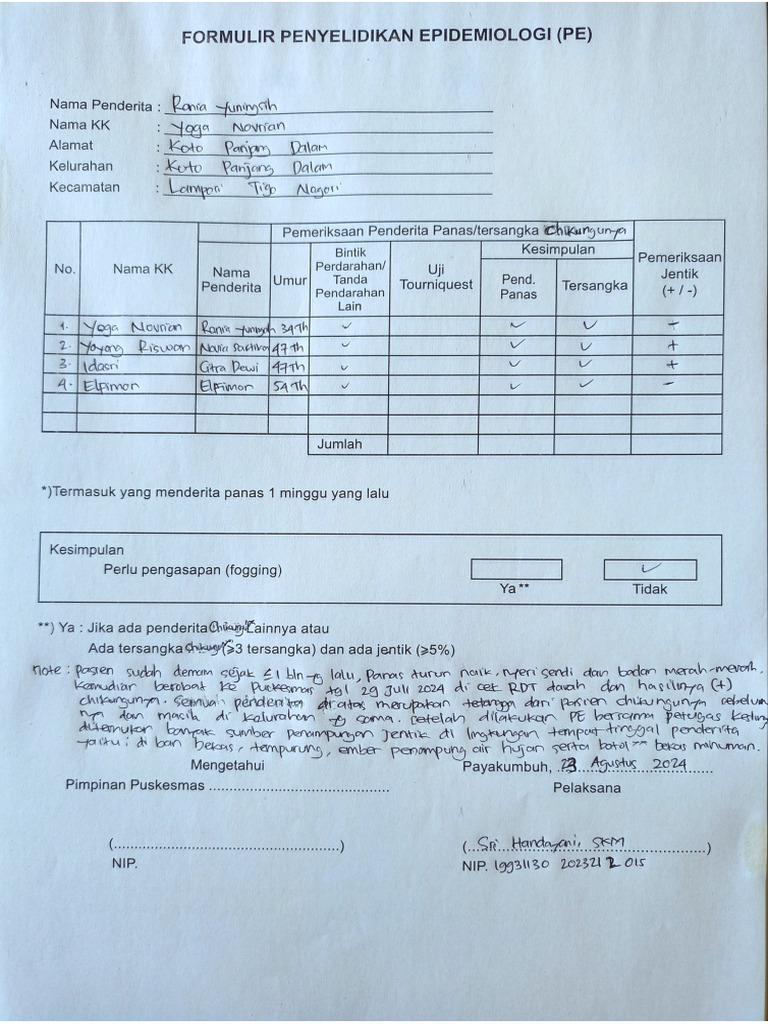 FORMULIR PENYELIDIKAN EPIDEMIOLOGI (PE)
Nama Penderita : Rania Yuningsih
Nama KK : Yoga Novrian
Alamat : Koto Panjang Dalam
Kelurahan : Koto Panjang Dalam
Kecamatan : Lampori Tigo Nagori
No. Nama KK Pemeriksaan Penderita Panas/tersangka Chikungunya Pemeriksaan Jentik (+ / -)
Nama Penderita Umur Bintik Perdarahan/ Tanda Pendarahan Lain Uji Tourniquest Kesimpulan
Pend. Panas Tersangka
1. Yoga Novrian Rania Yuningsih 34 Th ✓ ✓ ✓ +
2. Yayang Riswan Novia Sartika 47 Th ✓ ✓ ✓ +
3. Idasri Citra Dewi 47 Th ✓ ✓ ✓ +
4. Elfimon Elfimon 54 Th ✓ ✓ ✓ -
Jumlah
*)Termasuk yang menderita panas 1 minggu yang lalu
Kesimpulan
Perlu pengasapan (fogging) ✓
Ya** Tidak
**) Ya : Jika ada penderita Lainnya atau
Ada tersangka (≥3 tersangka) dan ada jentik (≥5%)
Note : pasien sudah demam sejak ≤ 1 bln yg lalu, panas turun naik, nyeri sendi dan badan merah-merah.
Kemudian berobat ke Puskesmas tgl 29 Juli 2024 di cek RDT darah dan hasilnya (+)
chikungunya. Semua penderita diatas merupakan tetangga dari pasien chikungunya sebelum
nya dan masih di kelurahan yg sama. Setelah dilakukan PE bersama petugas
ditemukan banyak sumber penampungan jentik di lingkungan tempat tinggal penderita
yaitu : di ban bekas, tempurung, ember penampung air hujan serta botol" bekas minuman.
Mengetahui
Payakumbuh, 23 Agustus 2024
Pimpinan Puskesmas
Pelaksana
(Sri Handayani, SKM)
NIP.
NIP. 19931130 202321 2 015